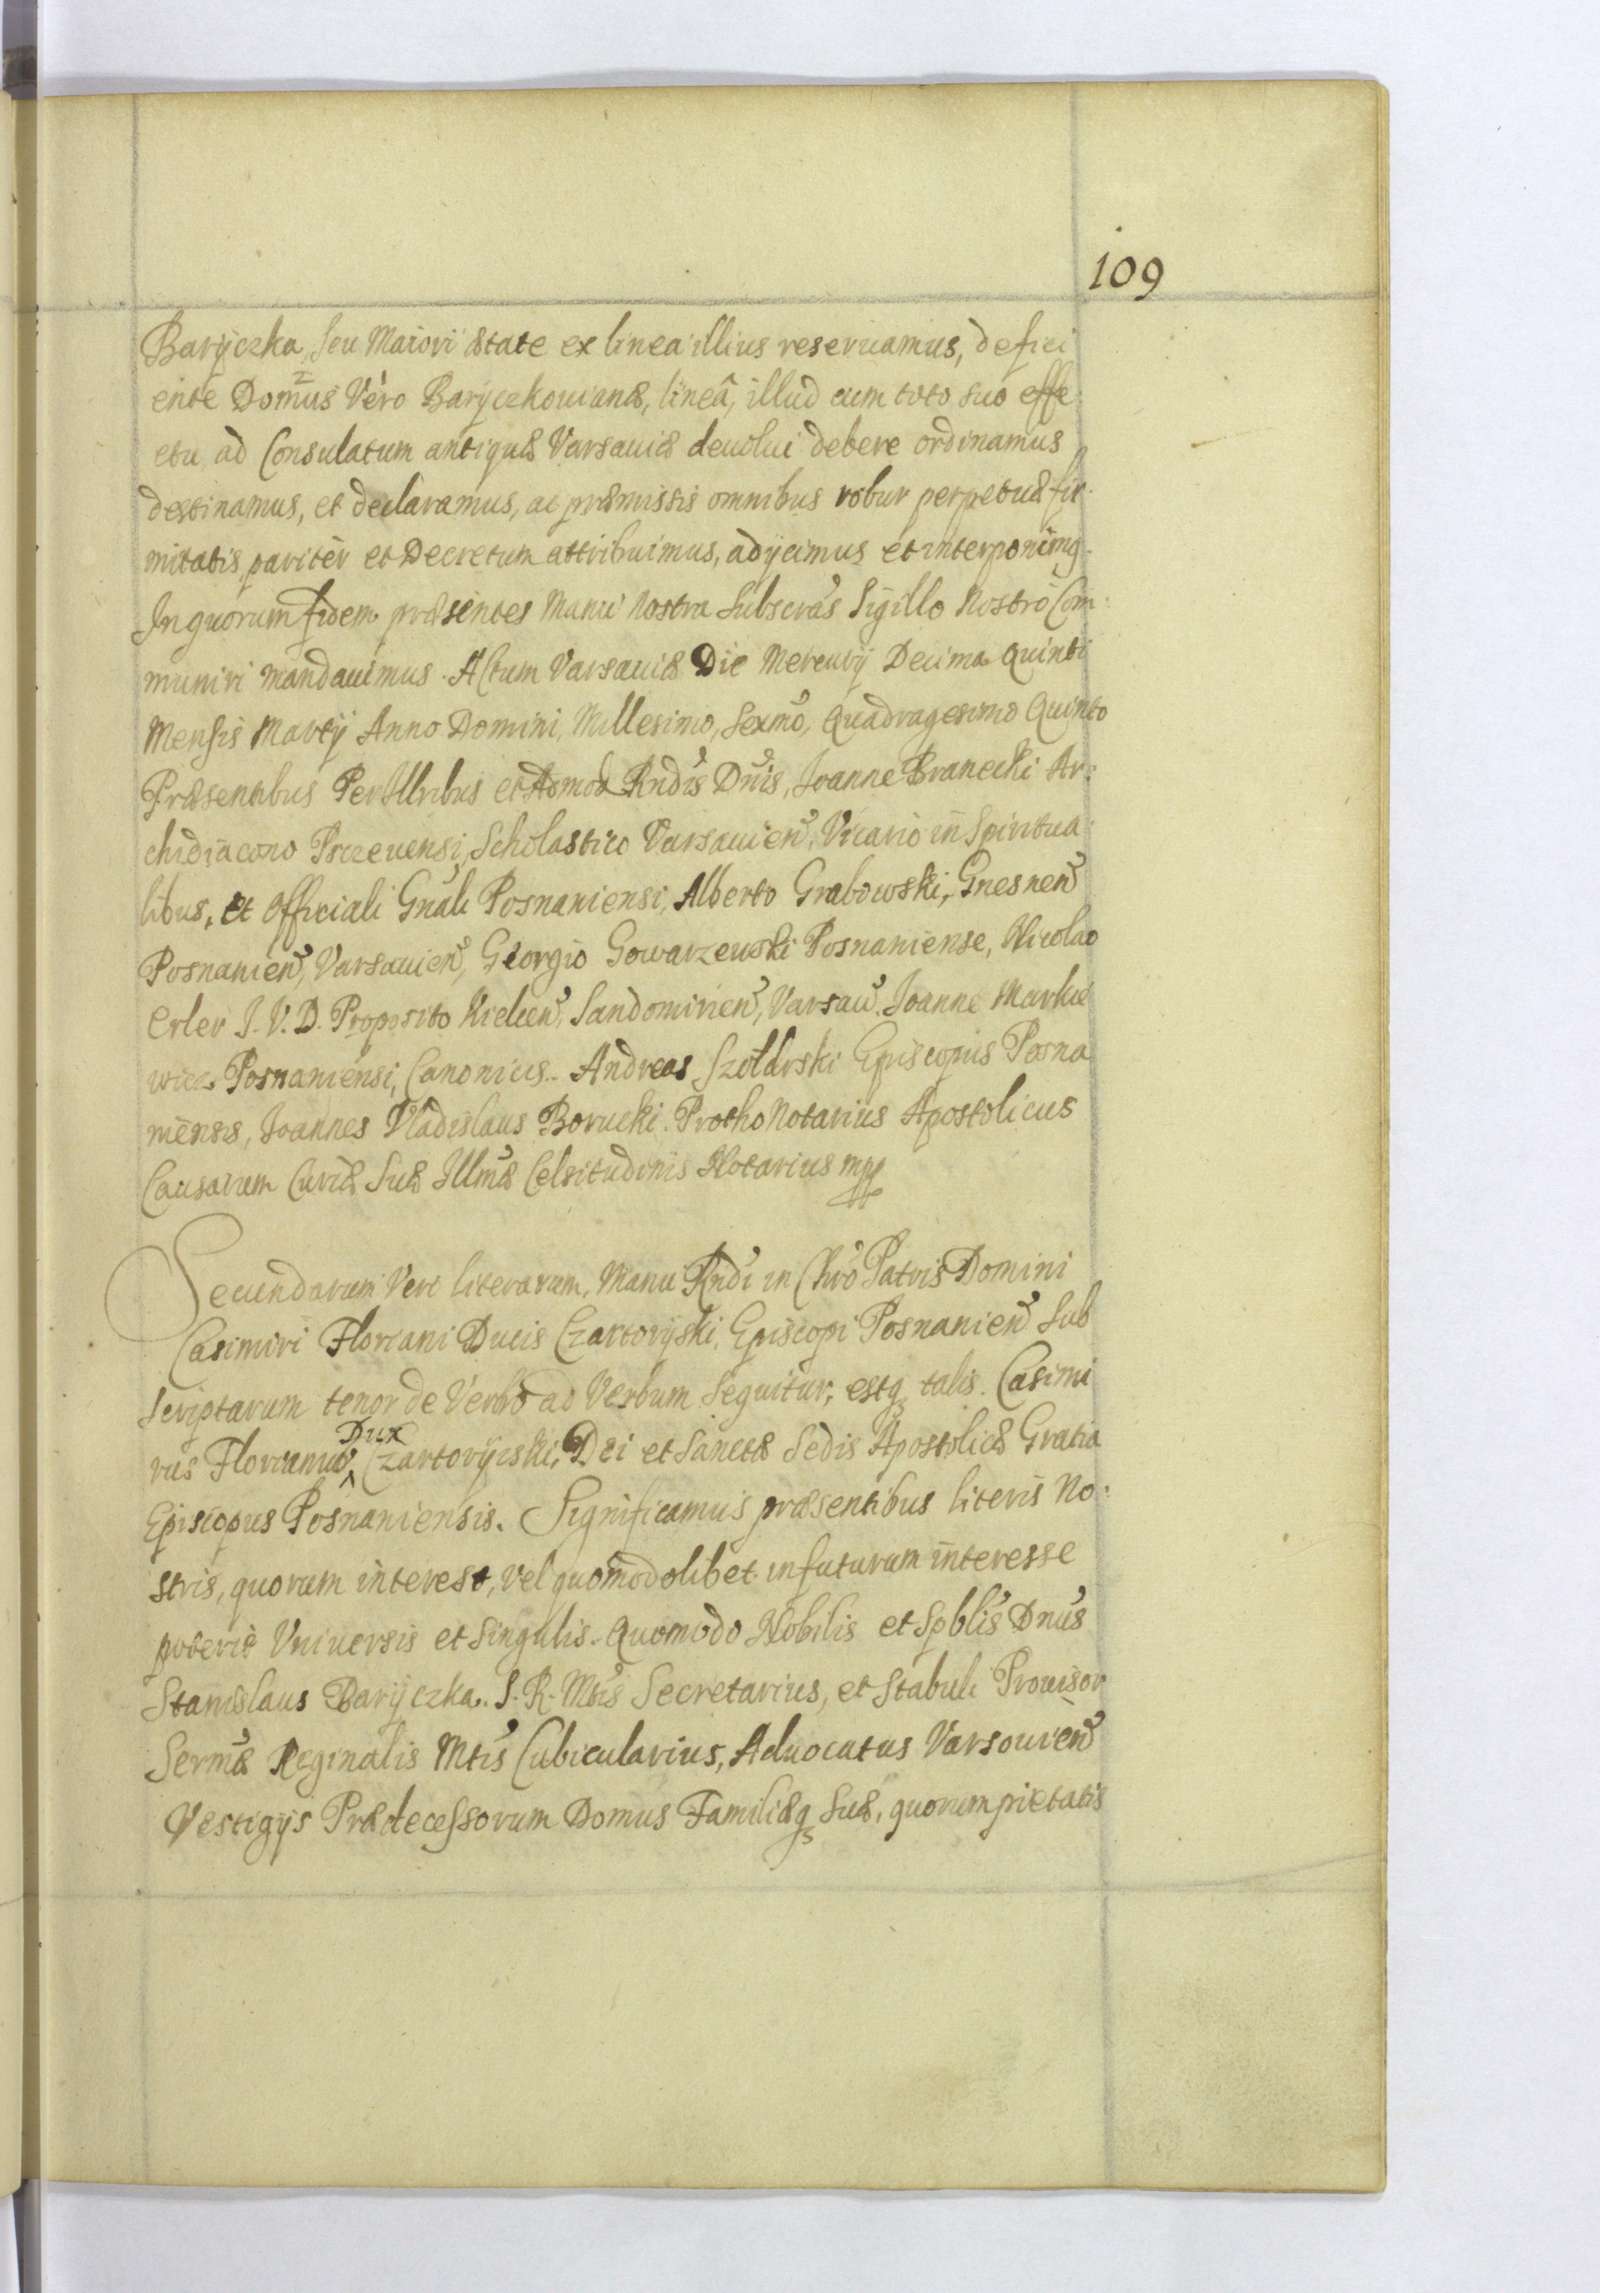 109
Baryczka, seu Maiori ætate ex linea illius reservamus, defici
ente Domus Vero Baryczkovianæ, lineâ, illud cum toto suo effe
ctu ad Consulatum antiquæ Varsaviæ devolui debere ordinamus
destinamus, et declaramus, ac præmissis omnibus robur perpetuæ fir
mitatis pariter et Decretum attribuimus, adijcimus et interponimq.
In quorum fidem præsentes Manu Nostra Subscras Sigillo Nostro Com:
muniri mandavimus. Actum Varsaviæ Die Mercurij Decima Quinti
Mensis Martij Anno Domini, Millesimo, Sexmo, Quadragesimo Quinto
Præsentibus Perillribus et Admod Rndis Dnis, Joanne Branecki Ar:
chidiacono Pszczevensi, Scholastico Varsavien, Vicario in Spiritua
libus, et Officiali Gnali Posnaniensi, Alberto Grabowski, Gnesnen
Posnanien, Varsavien, Georgio Gowarzewski Posnaniense, Nicolao
Erler J. V. D. Præposito Kielcen, Sandomirien, Varsav. Joanne Markie
wicz Posnaniensi, Canonicis. Andreas Szołdrski Episcopus Posna
niensis, Joannes Vladislaus Borucki. Protho Notarius Apostolicus
Causarum Curiæ Suæ Illmæ Celsitudinis Notarius mpp
Secundarum Vero literarum, Manu Rndi in Chro Patris Domini
Casimiri Floriani Ducis Czartoryski, Episcopi Posnanien Sub
scriptarum tenor de Verbo ad Verbum Sequitur, estq talis. Casimi
rus Florianus Dux Czartoryiski, Dei et Sanctæ Sedis Apostolicæ Gratia
Episcopus Posnaniensis. Significamus præsentibus literis No:
stris, quorum interest, vel quomodolibet in futurum interesse
poterit Vniversis et Singulis. Quomodo Nobilis et Spblis Dnus
Stanislaus Baryczka. S. R. Mtis Secretarius, et Stabuli Provisor
Sermæ Reginalis Mtis Cubicularius, Advocatus Varsovien
Vestigijs Prædecessorum Domus Familiæq Suæ, quorum pietatis